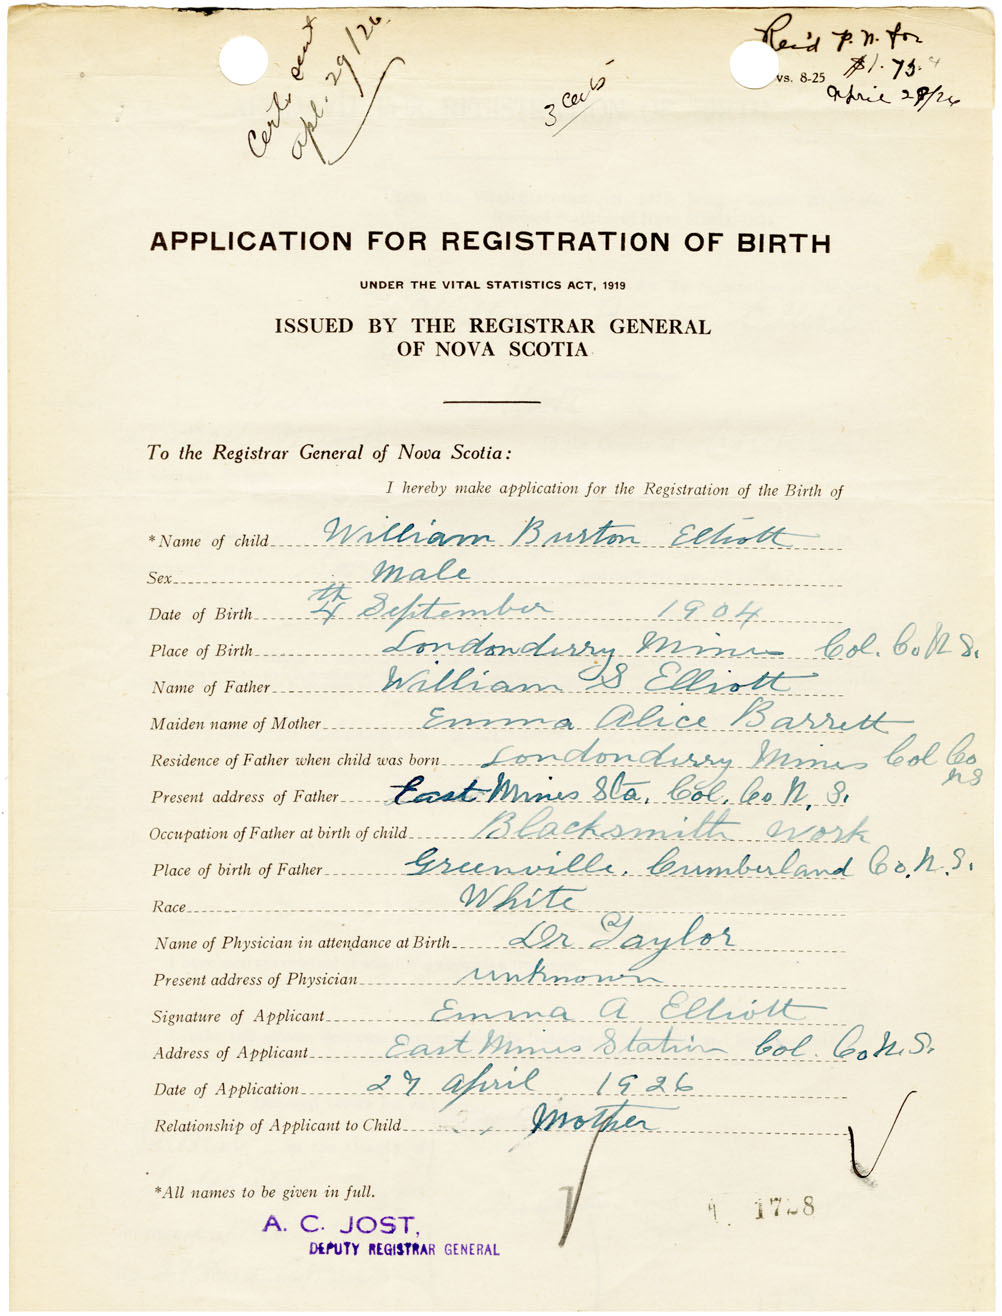 Certs sent
apl. 29/26
3 Certs
Rec'd P.N. for
$1.75
vs. 8-25
April 28/26
APPLICATION FOR REGISTRATION OF BIRTH
UNDER THE VITAL STATISTICS ACT, 1919
ISSUED BY THE REGISTRAR GENERAL
OF NOVA SCOTIA
To the Registrar General of Nova Scotia:
I hereby make application for the Registration of the Birth of
*Name of child William Burton Elliott
Sex Male
Date of Birth 4th September 1904
Place of Birth Londonderry Mines Col. Co N S.
Name of Father William S Elliott
Maiden name of Mother Emma Alice Barrett
Residence of Father when child was born Londonderry Mines Col Co NS
Present address of Father East Mines Sta. Col. Co N. S.
Occupation of Father at birth of child Blacksmith Work
Place of birth of Father Greenville, Cumberland Co. N. S.
Race White
Name of Physician in attendance at Birth Dr Taylor
Present address of Physician unknown
Signature of Applicant Emma A Elliott
Address of Applicant East Mines Station Col. Co N. S.
Date of Application 27 April 1926
Relationship of Applicant to Child Mother
*All names to be given in full.
A. C. JOST,
DEPUTY REGISTRAR GENERAL